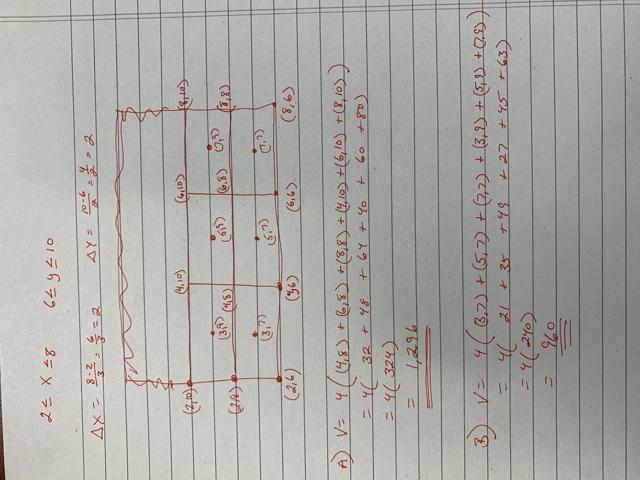 2 ≤ x ≤ 8 6 ≤ y ≤ 10
Δx = 8-2/3 = 6/3 = 2 ΔY = 10-6/2 = 4/2 = 2
(2,10) (4,10) (6,10) (8,10)
(3,9) (5,9) (7,9)
(2,8) (4,8) (6,8) (8,8)
(3,7) (5,7) (7,7)
(2,6) (4,6) (6,6) (8,6)
A) V = 4((4,8) + (6,8) + (8,8) + (4,10) + (6,10) + (8,10))
= 4(32 + 48 + 64 + 40 + 60 + 80)
= 4(324)
= 1,296
B) V = 4((3,7) + (5,7) + (7,7) + (3,9) + (5,9) + (7,9))
= 4(21 + 35 + 49 + 27 + 45 + 63)
= 4(240)
= 960